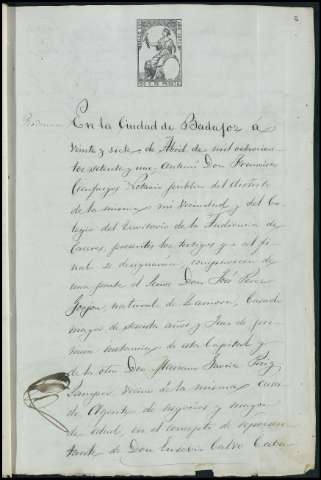 En la Ciudad de Badajoz á
veinte y siete de Abril de mil ochocien
tos setenta y uno, ante mi Don Francisco
Notario publico del distrito
de la misma mi vecindad y del Co
legio del territorio de la Audiencia de
Caceres, presentes los testigos que al fi
nal se designarán, comparecen de
una parte el Señor Don José Perez
natural de Zamora, Casado
mayor de años y Juez de pri
mera instancia de esta Capital y
de la otra Don Mariano
vecino de la misma, casa
do Agente de negocios y mayor
de edad, en el concepto de represen
tante de Don Eusevio Calvo